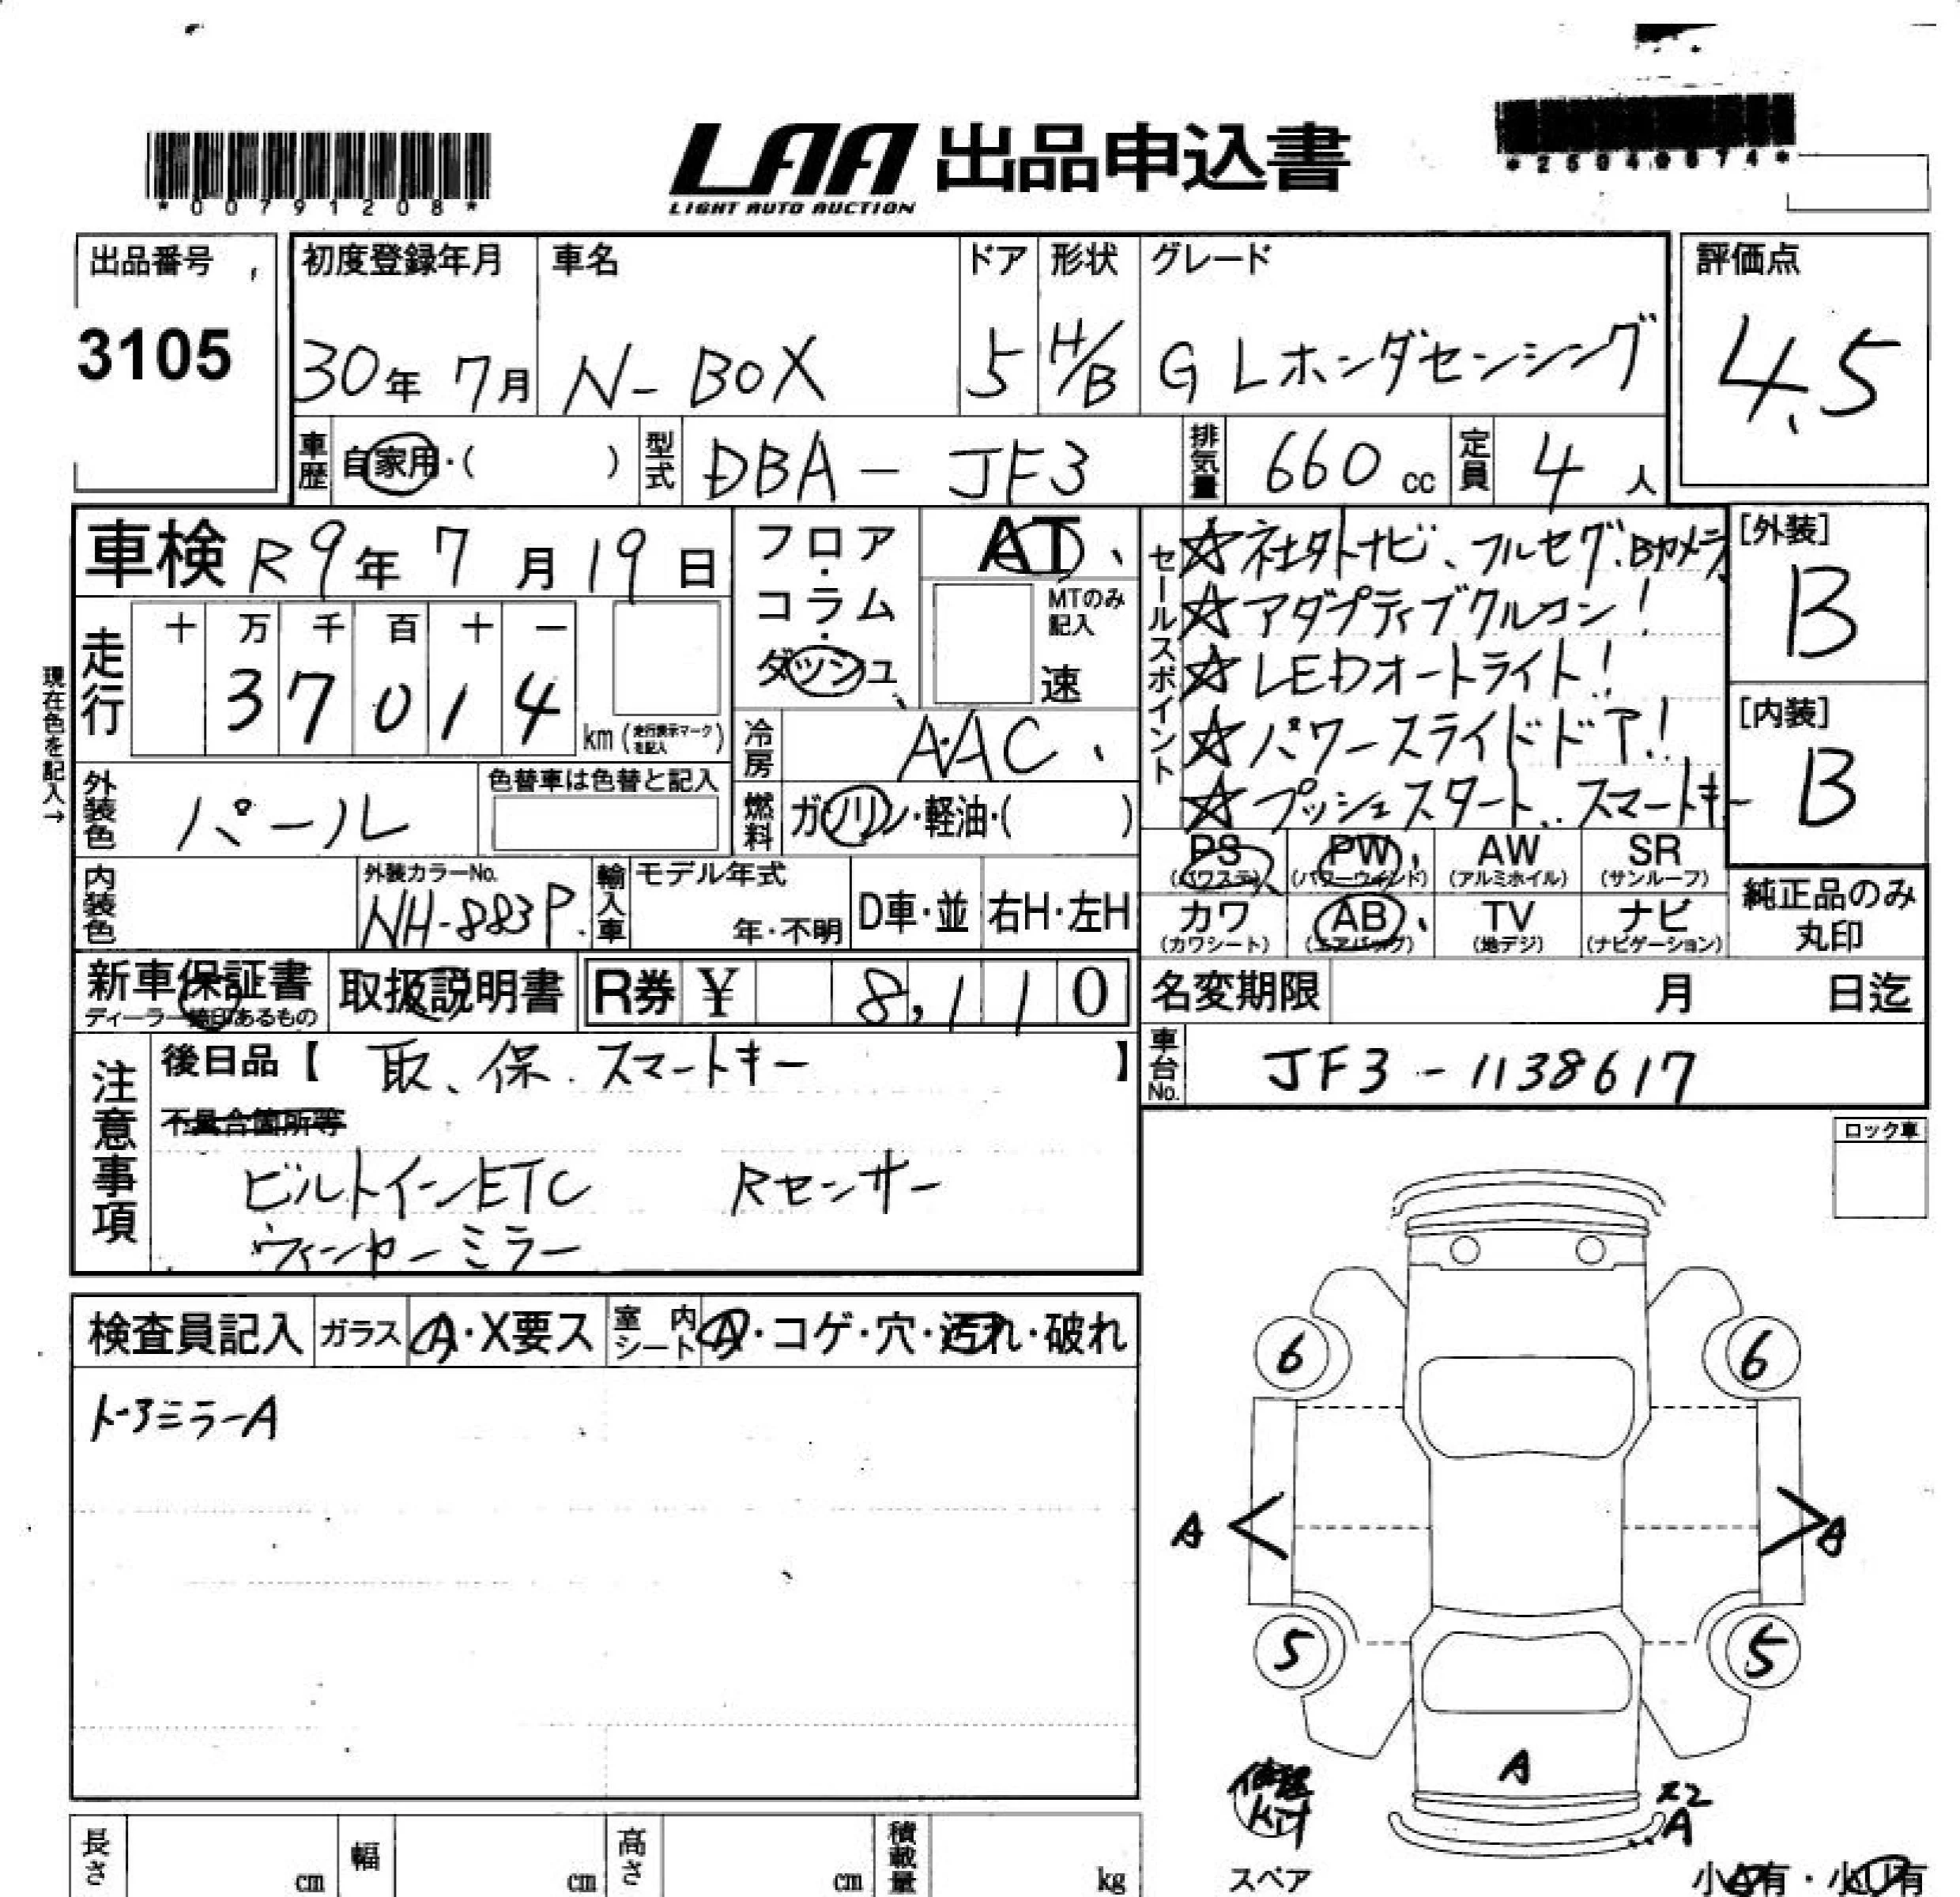 *00791208*
LAA 出品申込書
LIGHT AUTO AUCTION
*25040874*
出品番号
3105
初度登録年月
30年 7月
車名
N-BOX
ドア
5
形状
H/B
グレード
G Lホンダセンシング
評価点
4.5
車歴
自家用・( )
型式
DBA-JF3
排気量
660 cc
定員
4 人
車検 R9年 7月 19日
フロア・コラム・ダッシュ
AT
MTのみ記入
速
セールスポイント
☆社外ナビ、フルセグ、Bカメラ
☆アダプティブクルコン!
☆LEDオートライト!
☆パワースライドドア!
☆プッシュスタート、スマートキー
[外装]
B
[内装]
B
現在色を記入→
走行
十 万 千 百 十 一
3 7 0 1 4
km(走行表示マークを記入)
冷房
AAC
燃料
ガソリン・軽油・( )
外装色
パール
色替車は色替と記入
内装色
外装カラーNo.
NH-883P
輸入車
モデル年式
年・不明
D車・並
右H・左H
PS (パワステ)
PW (パワーウィンド)
AW (アルミホイル)
SR (サンルーフ)
カワ (カワシート)
AB (エアバッグ)
TV (地デジ)
ナビ (ナビゲーション)
純正品のみ丸印
新車保証書
ディーラー捺印あるもの
取扱説明書
R券 ¥ 8,110
名変期限 月 日迄
車台No.
JF3-1138617
注意事項
後日品【 取、保、スマートキー 】
不具合箇所等
ビルトインETC Rセンサー
ウィンカーミラー
ロック車
検査員記入
ガラス
A・X要ス
室内シート
A・コゲ・穴・汚れ・破れ
ドアミラーA
6 6
A A
5 5
A
修理kit
x2
A
スペア
長さ cm
幅 cm
高さ cm
積載量 kg
小A有・小U有